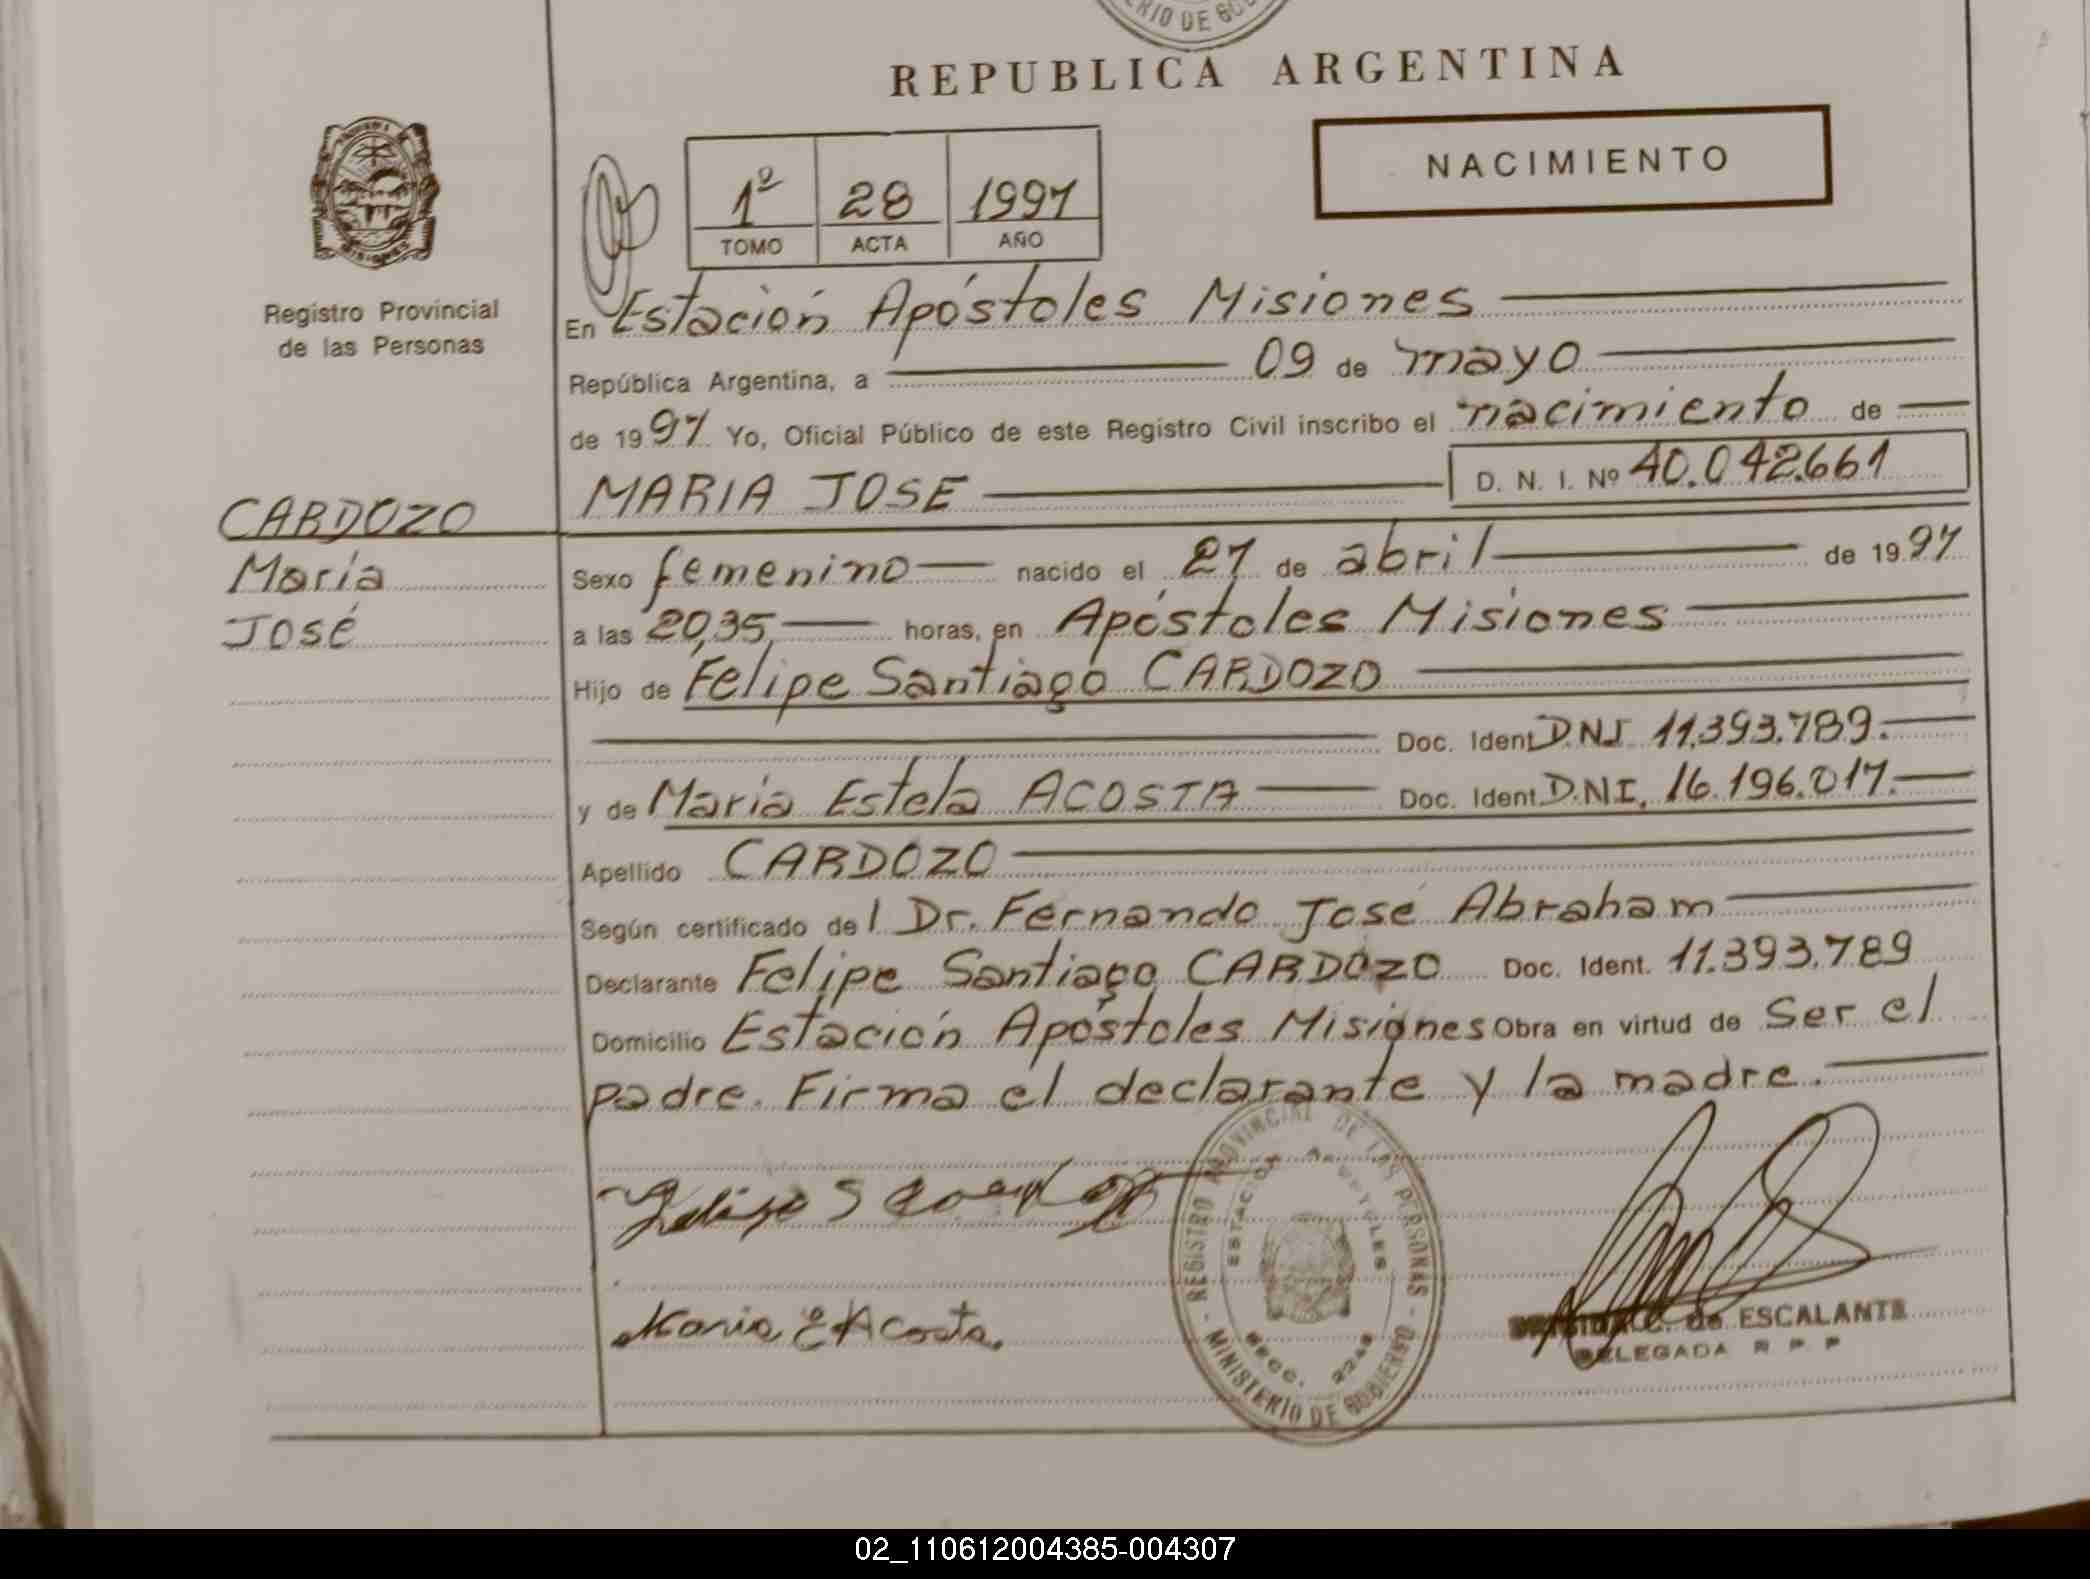 MINISTERIO DE GOBIERNO
REPUBLICA ARGENTINA
NACIMIENTO
1º 28 1997
TOMO ACTA AÑO
MISIONES
Registro Provincial
de las Personas
En Estación Apóstoles Misiones
República Argentina, a 09 de mayo
de 1997 Yo, Oficial Público de este Registro Civil inscribo el nacimiento de
MARIA JOSE D. N. I. Nº 40.042.661
CARDOZO
María
José
Sexo femenino nacido el 27 de abril de 1997
a las 20,35 horas, en Apóstoles Misiones
Hijo de Felipe Santiago CARDOZO
Doc. Ident D.N.I 11.393.789.
y de María Estela ACOSTA Doc. Ident D.N.I. 16.196.017.
Apellido CARDOZO
Según certificado del Dr. Fernando José Abraham
Declarante Felipe Santiago CARDOZO Doc. Ident. 11.393.789
Domicilio Estación Apóstoles Misiones Obra en virtud de Ser el
padre. Firma el declarante y la madre.
REGISTRO PROVINCIAL DE LAS PERSONAS - MINISTERIO DE GOBIERNO -
ESTACION APOSTOLES
SECC. 2248
Felipe S Cardozo
Maria E Acosta.
C. de ESCALANTE
DELEGADA R P P
02_110612004385-004307